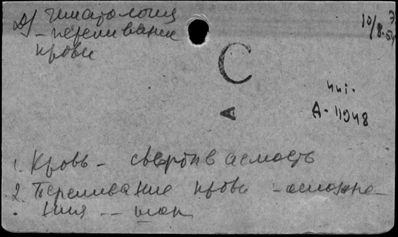 Д/ гематология
- переливание
крови
10/8-54
С
А
чит.
А-11948
1. Кровь - свертываемость
2. Переливание крови - осложне-
ния -- шок